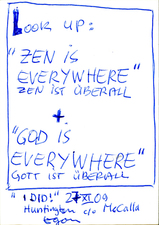 LOOK UP:
"ZEN IS
EVERYWHERE"
ZEN IST ÜBERALL
+
"GOD IS
EVERYWHERE"
GOTT IST ÜBERALL
"I DID!" 27 XI 09
Huntington c/o McCalla
Egon